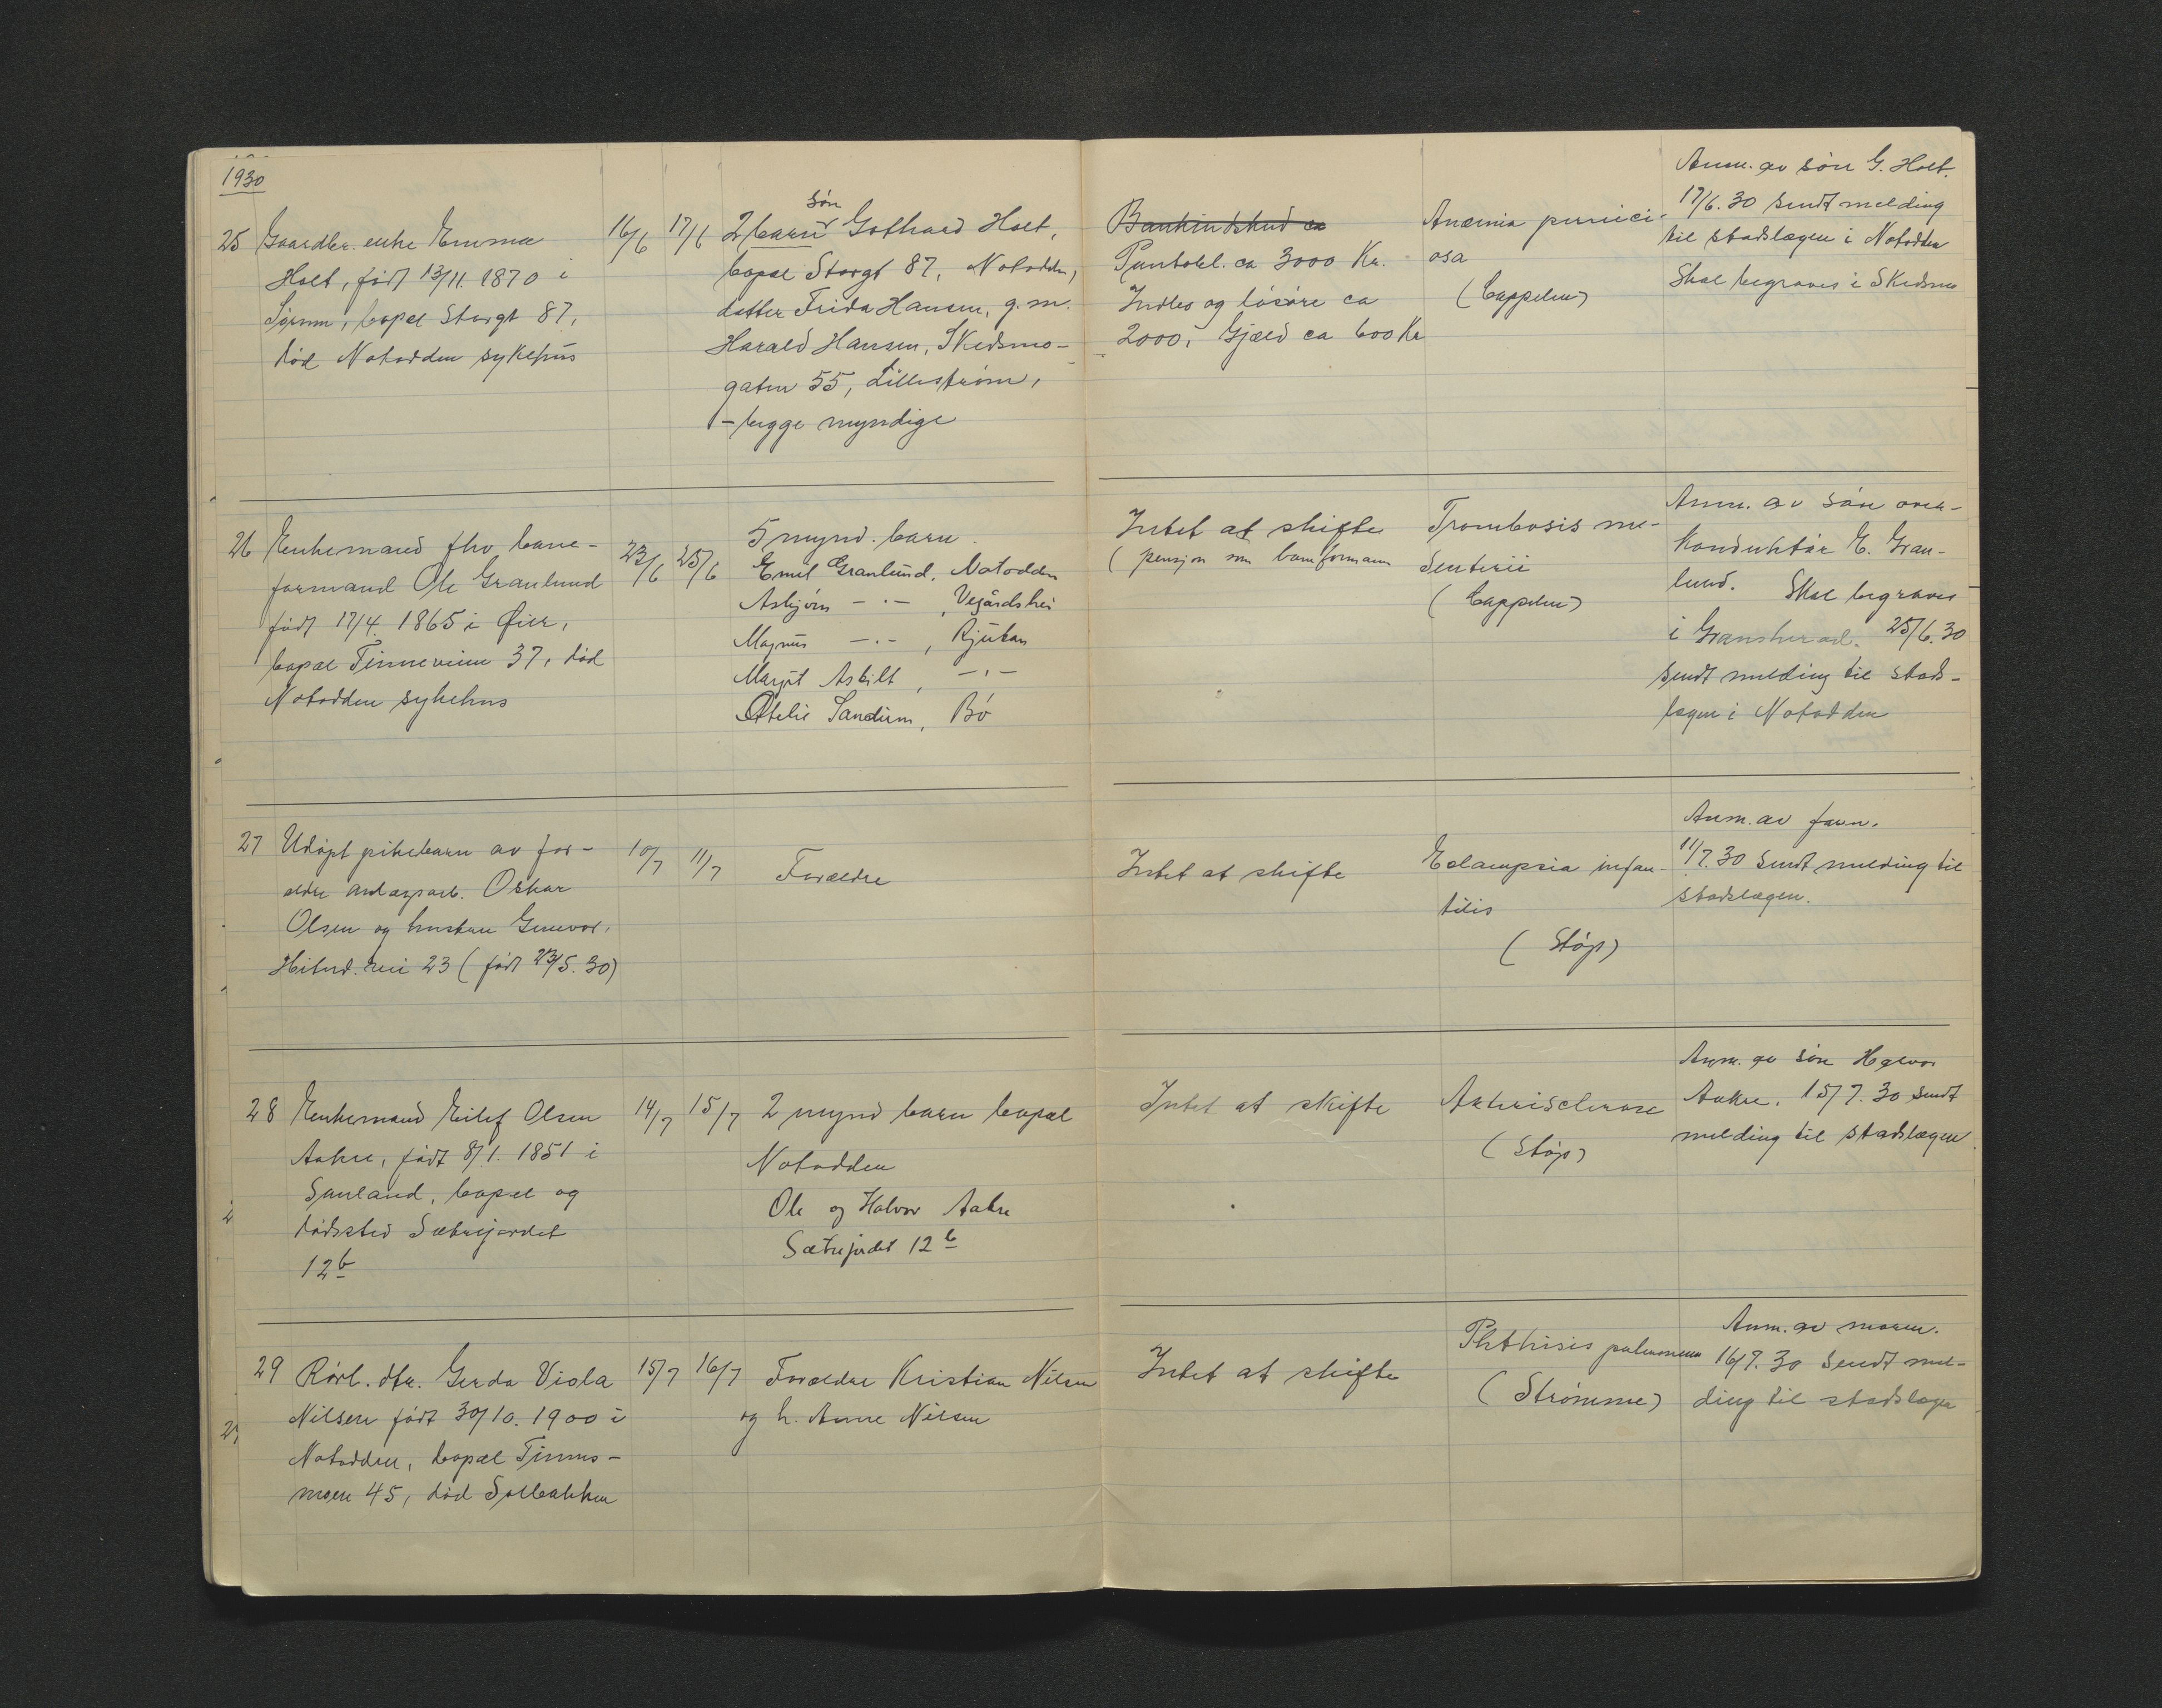 1930
25 Gaardbr. enke Emma
Holt, født 13/11. 1870 i
Sørum, bopæl Storgt 87,
død Notodden sykehus
16/6 17/6
søn
2 barn Gothard Holt,
bopæl Storgt 87, Notodden,
datter Frida Hansen, g.m.
Harald Hansen, Skedsmo-
gaten 55, Lillestrøm,
- begge myndige
Bankindskud ca
Pantobl. ca 3000 Kr.
Indbo og løsøre ca
2000, Gjæld ca 600 Kr
Anæmia pernici-
osa
(Cappelen)
Anm. av søn G. Holt.
17/6. 30 sendt melding
til stadslægen i Notodden
Skal begraves i Skedsmo
26 Enkemand fhv bane-
formand Ole Granlund
født 17/4. 1865 i Øier,
bopæl Tinneveien 37, død
Notodden sykehus
23/6 25/6
5 mynd. barn
Emil Granlund, Notodden
Asbjørn -"- , Vegårdshei
Magnus -"- , Rjukan
Margit Askilt , -"-
Otelie Sandum, Bø
Intet at skifte
(pensjon som baneformann
Trombosis me-
senterii
(Cappelen)
Anm. av søn over-
konduktør E. Gran-
lund. Skal begraves
i Gransherad. 25/6. 30
sendt melding til stads-
lægen i Notodden
27 Udøpt pikebarn av for-
ældre anlægsarb. Oskar
Olsen og hustru Gunvor,
Hitterd. vei 23 (født 23/5. 30)
10/7 11/7
Forældre
Intet at skifte
Eclampsia infan-
tilis
(Støp)
Anm. av faren.
11/7. 30 sendt melding til
stadslægen.
28 Enkemand Eilef Olsen
Aakre, født 8/1. 1851 i
Sauland, bopæl og
dødssted Sætrejordet
12 b
14/7 15/7
2 mynd barn bopæl
Notodden
Ole og Halvor Aakre
Sætrejordet 12 b
Intet at skifte
Arteriosclerose
(Støp)
Anm. av søn Halvor
Aakre. 15/7. 30 sendt
melding til stadslægen.
29 Rørl. dtr. Gerda Viola
Nilsen født 30/10. 1900 i
Notodden, bopæl Tinnes-
moen 45, død Solbakken
15/7 16/7
Forældre Kristian Nilsen
og h. Anne Nilsen
Intet at skifte
Phthisis pulmonum
(Strømme)
Anm. av moren.
16/7. 30 sendt mel-
ding til stadslægen